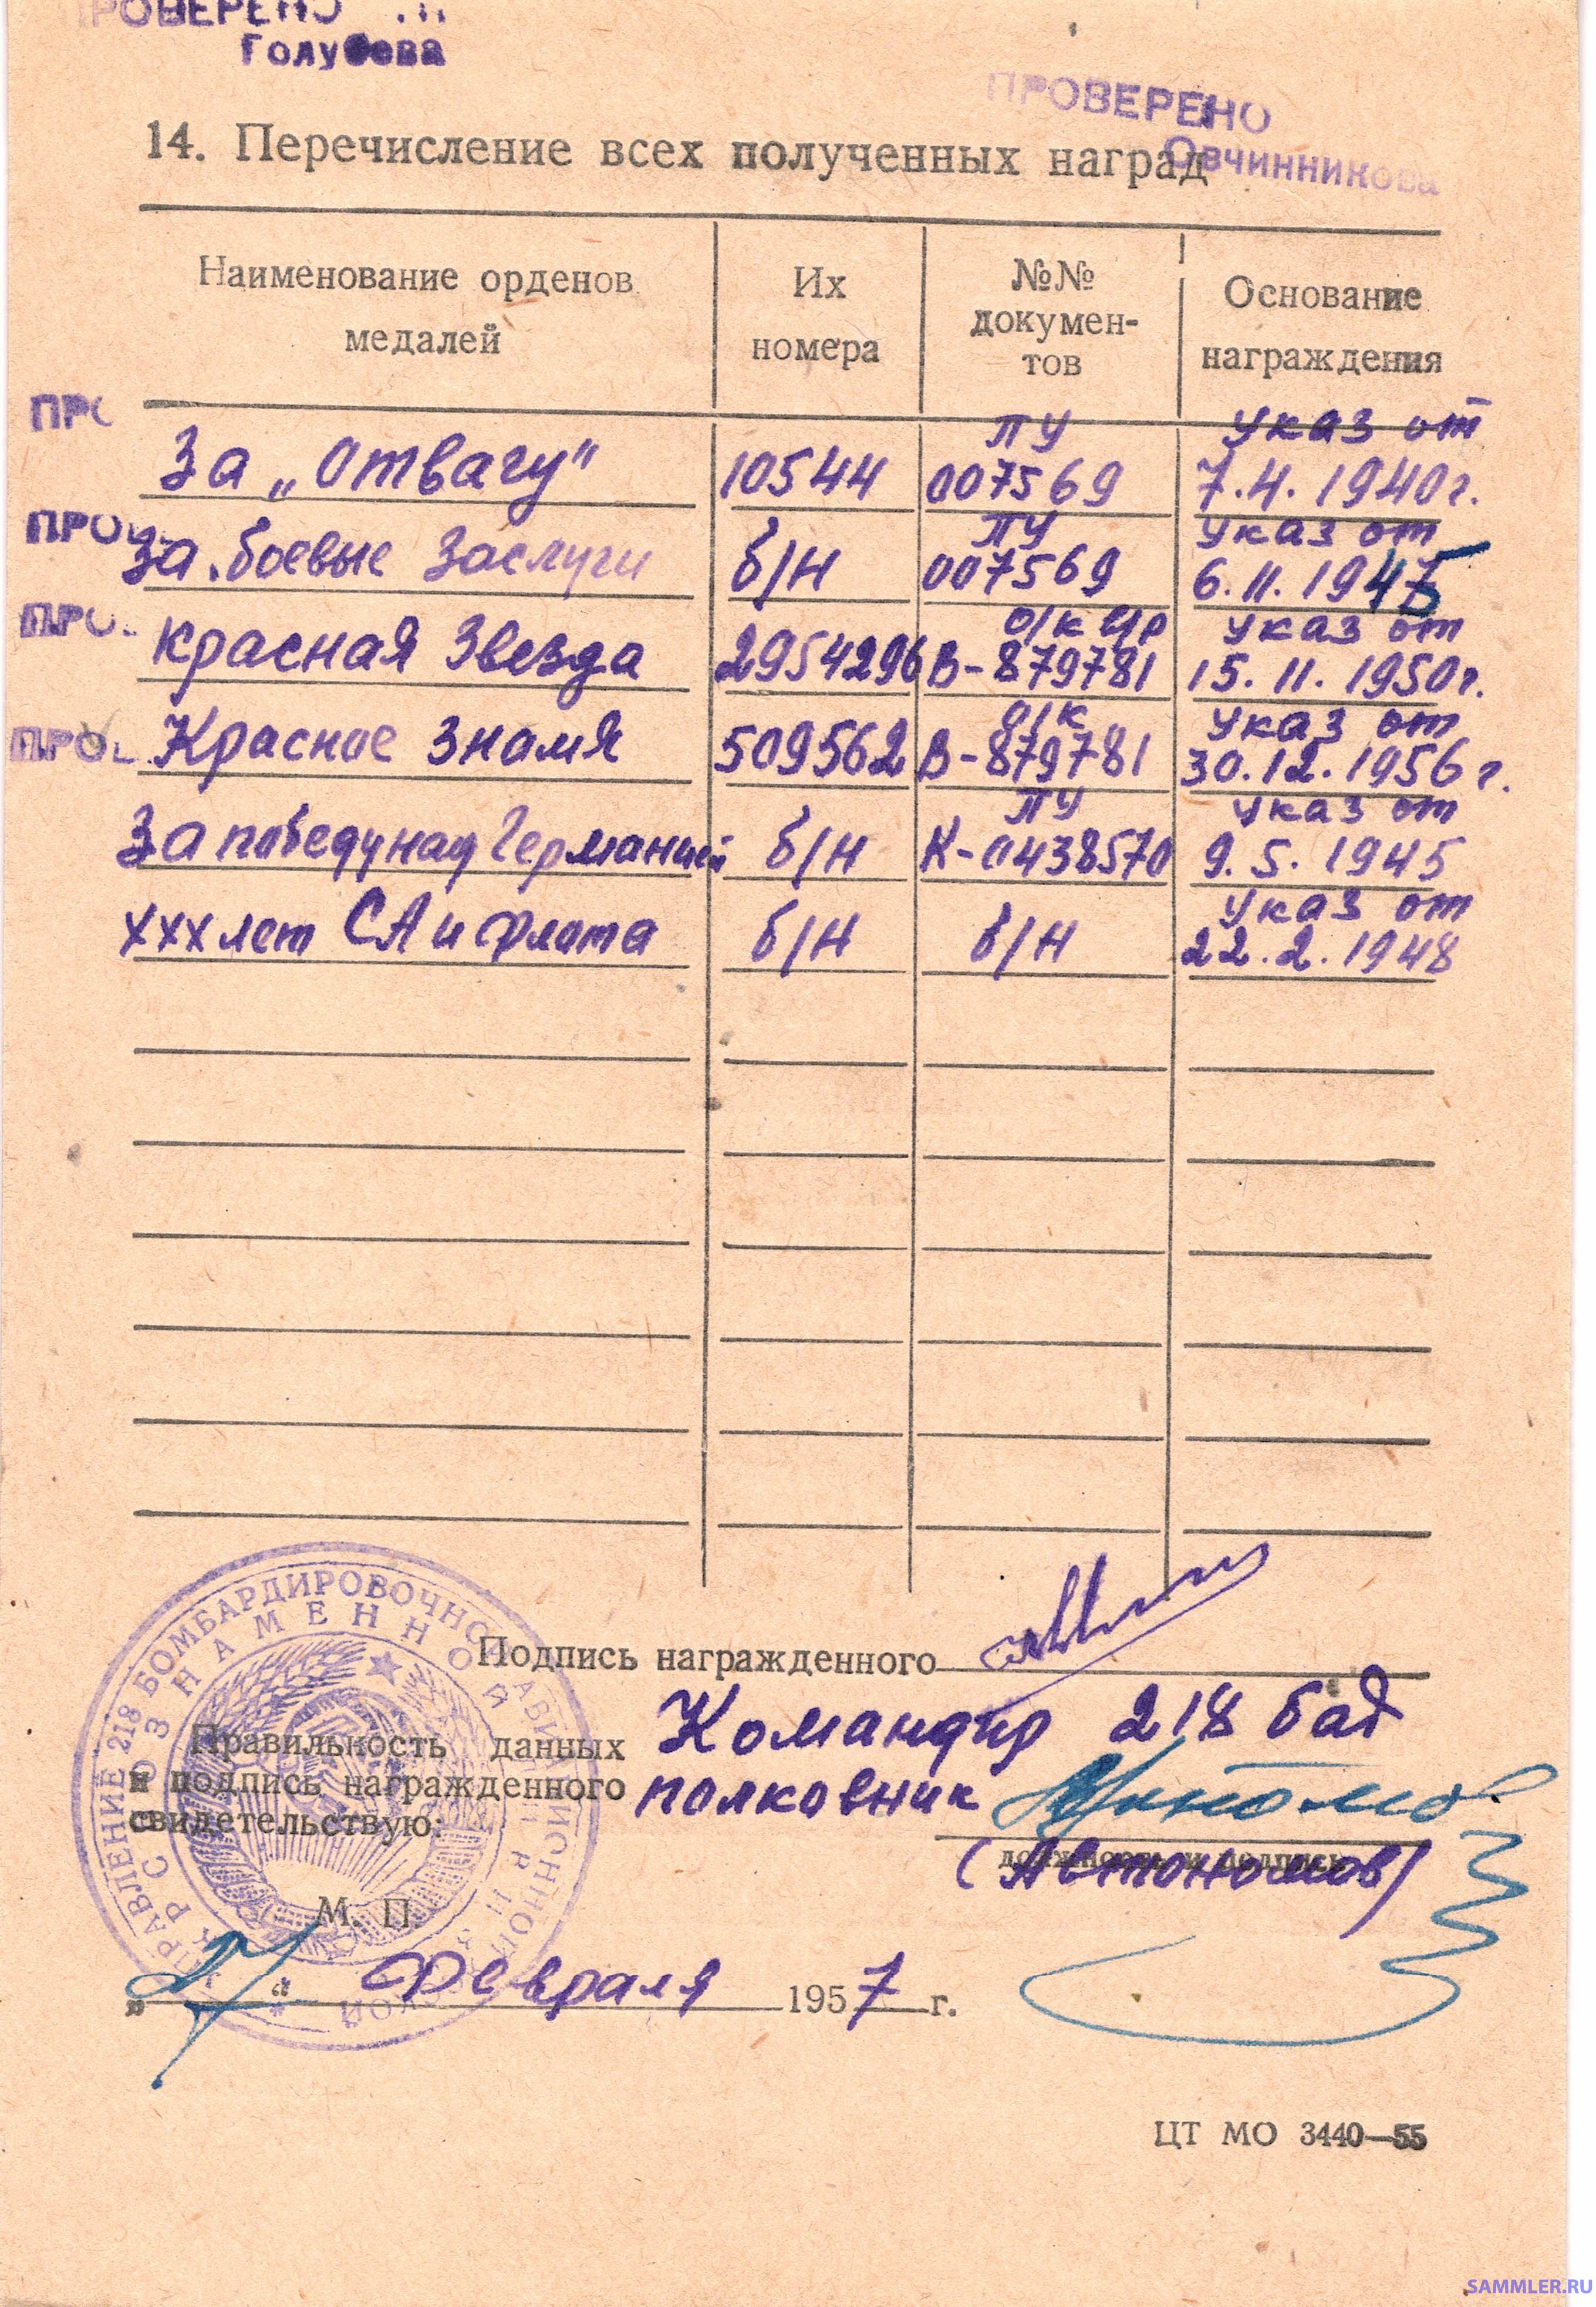 ПРОВЕРЕНО
Голубева
ПРОВЕРЕНО
Овчинникова
14. Перечисление всех полученных наград
Наименование орденов медалей
Их номера
№№ докумен-
тов
Основание награждения
ПРО
За „Отвагу" 10544 ПУ 007569 Указ от 7.4.1940г.
ПРОВ
За боевые заслуги б/н ПУ 007569 Указ от 6.11.1945
ПРО
Красная Звезда 2954296 о/к В-879781 Указ от 15.11.1950г.
ПРОВ
Красное Знамя 509562 о/к В-879781 Указ от 30.12.1956г.
За победу над Германией б/н ПУ К-0438570 Указ от 9.5.1945
XXX лет СА и Флота б/н б/н Указ от 22.2.1948
Подпись награжденного
Правильность данных
и подпись награжденного
свидетельствую:
Командир 218 бад
полковник
должность и подпись
(Автономов)
М. П.
" " Февраля 1957 г.
УПРАВЛЕНИЕ 218 БОМБАРДИРОВОЧНОЙ АВИАЦИОННОЙ
КРАСНОЗНАМЕННОЙ
ЦТ МО 3440—55
SAMMLER.RU